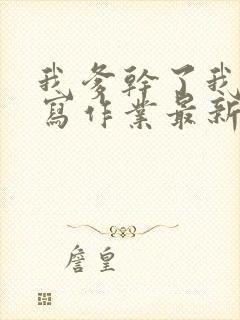 我爹幹了我
寫作業最新
詹皇